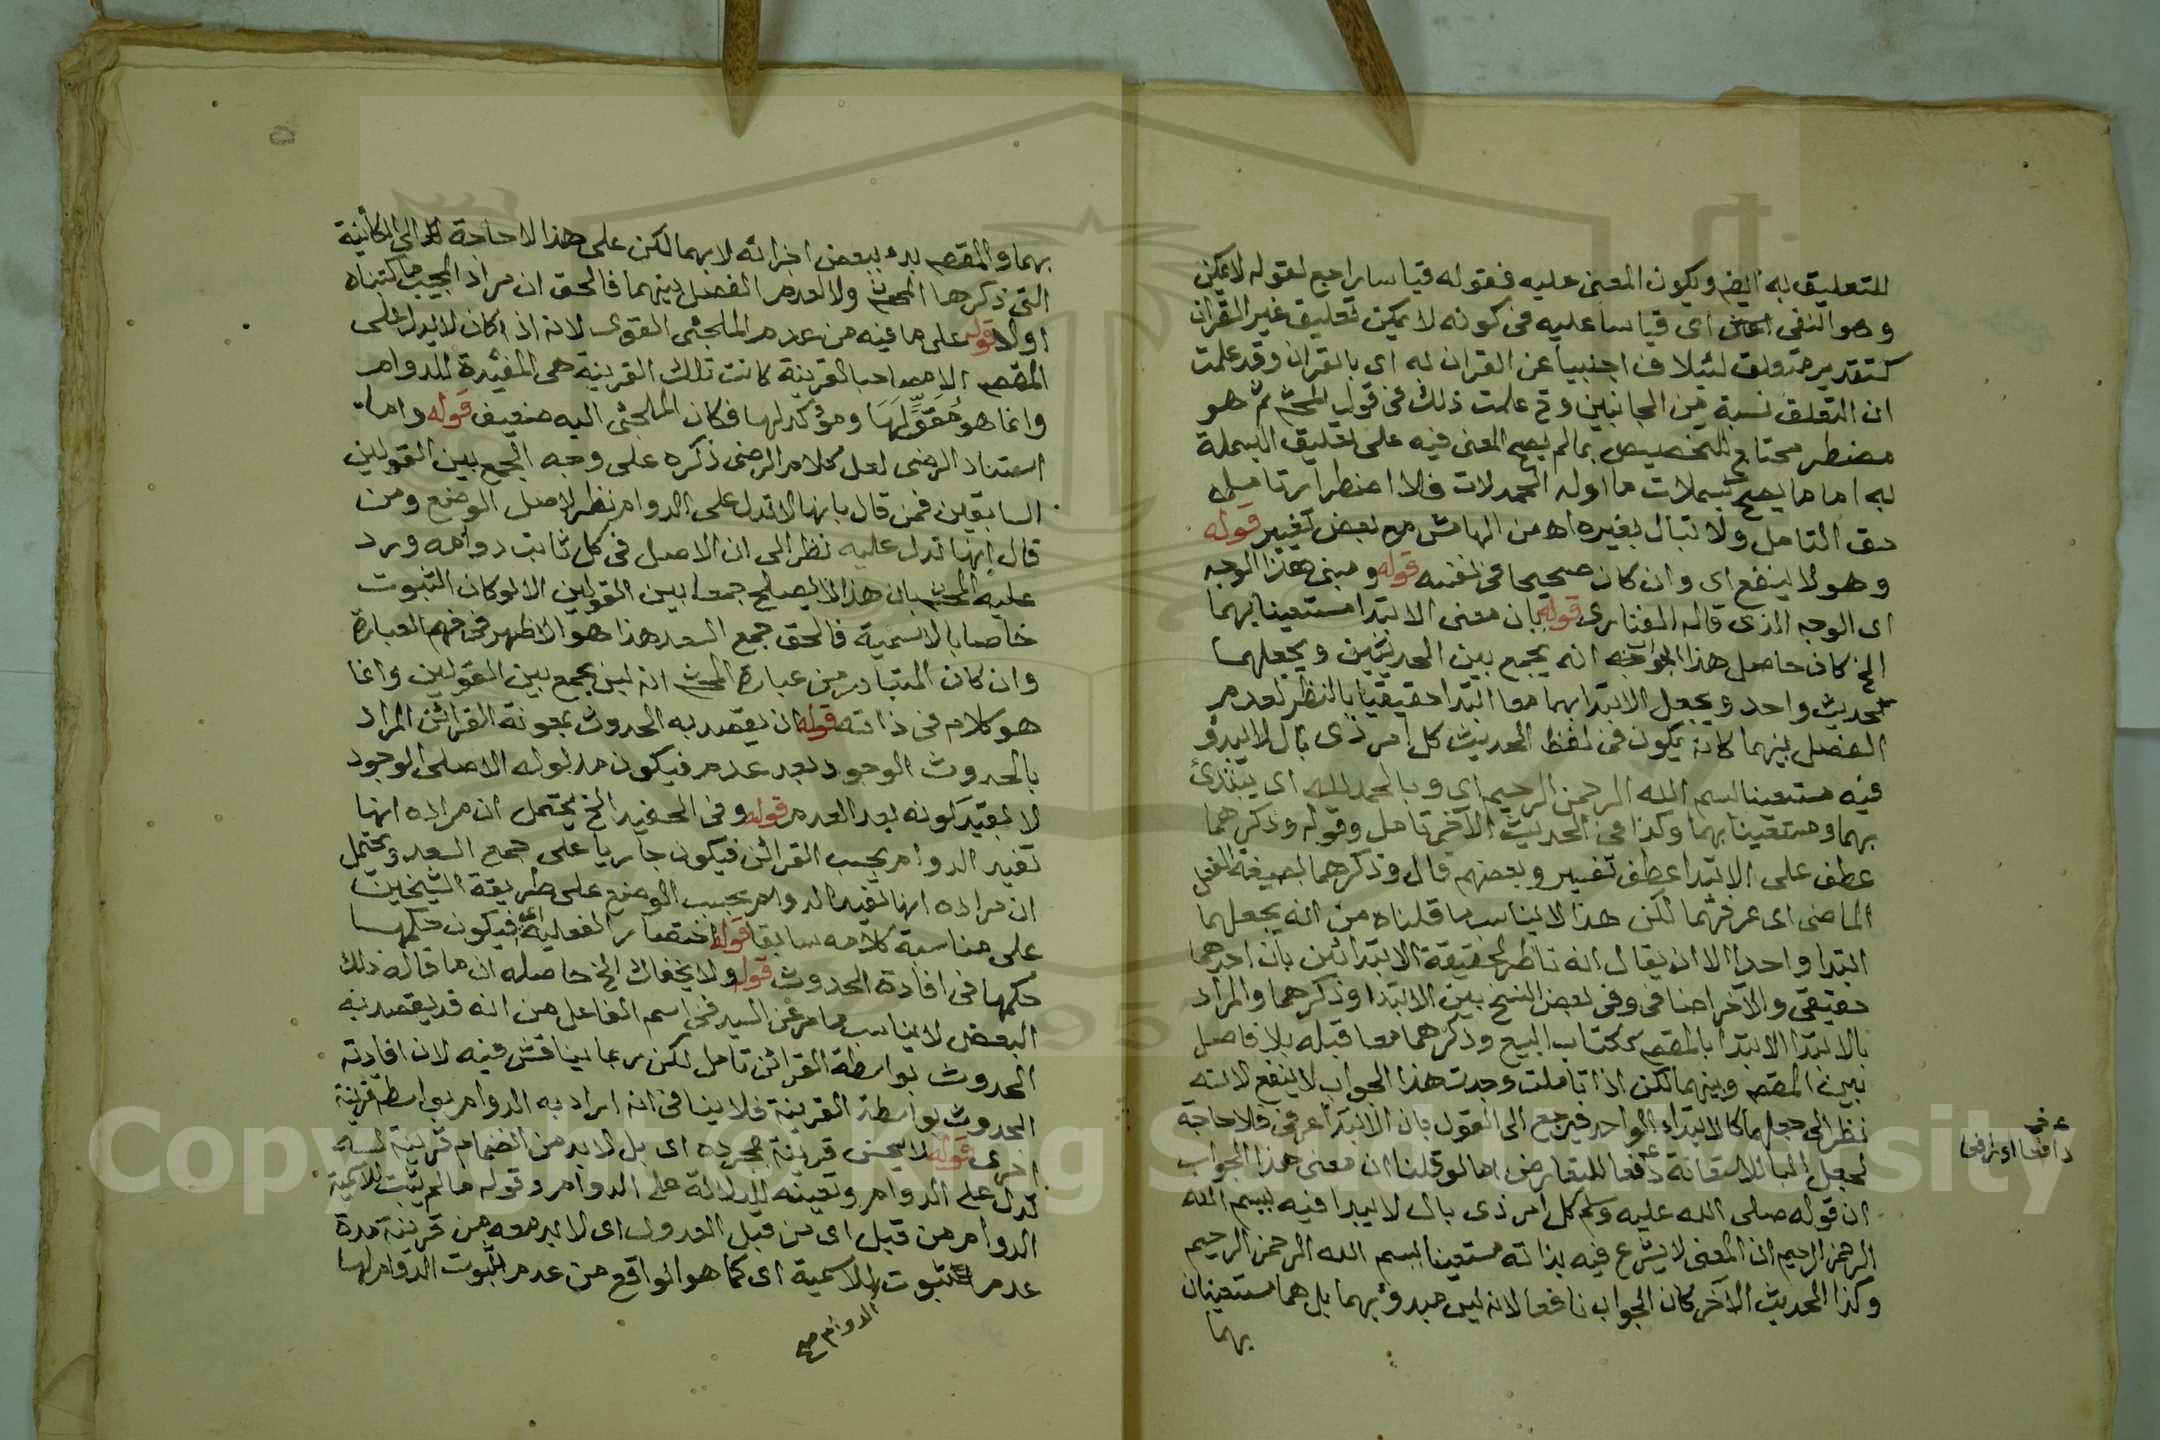 للتعليق به ايضا ويكون المعنى عليه فقوله قياسا راجع لقوله لا يمكن
وهو النفى اى قياسا عليه فى كونه لا يمكن تعليق غير القران
كتقدير متعلق لئيلاف اجنبيا عن القران له اى بالقران وقد علمت
ان التعلق نسبة من الجانبين وقد علمت ذلك فى قول المحشى ثم هو
مضطر محتاج للتخصيص بما لم يصح المعنى فيه على تعليق البسملة
به اما ما يصح كبسملات ما اوله الحمدلات فلا اضطرار تامله
حق التامل ولا تبال بغيره اه من الهامش مع بعض تغيير قوله
وهو لا ينفع اى وان كان صحيحا فى نفسه قوله ومبنى هذا الوجه
اى الوجه الذى قاله الفنارى قوله بان معنى الابتدا مستعينا بهما
الخ كان حاصل هذا الجواب انه يجمع بين الحديثين ويجعلهما
كحديث واحد ويجعل الابتدا بهما معا ابتدا حقيقيا بالنظر لعدم
الفصل بينهما كانه يكون فى لفظ الحديث كل امر ذى بال لا يبدؤ
فيه مستعينا بسم الله الرحمن الرحيم اى وبالحمد لله اى يبتدئ
بهما ومستعينا بهما وكذا فى الحديث الاخر تامل وقوله وذكرهما
عطف على الابتدا عطف تفسير وبعضهم قال وذكرهما بصيغة الفعل
الماضى اى عرفتهما لكن هذا لا يناسب ما قلناه من انه يجعلهما
ابتدا واحدا الا ان يقال انه ناظر لحقيقة الابتدائين بان احدهما
حقيقى والآخر اضافى وفى بعض النسخ بين الابتدا وذكرهما والمراد
بالابتدا الابتدا بالمقصم ككتاب البيع وذكرهما معا قبله بلا فاصل
بين المقصم وبينهما لكن اذا تاملت وجدت هذا الجواب لا ينفع لانه
نظر الى جعلهما كالابتداء الواحد فيرجع الى القول بان الابتدا عرفى فلا حاجة
لجعل البا للاستعانة دفعا للتعارض اما لو قلنا ان معنى هذا الجواب
ان قوله صلى الله عليه وسلم كل امر ذى بال لا يبدا فيه ببسم الله
الرحمن الرحيم ان المعنى لا يشرع فيه بذاته مستعينا بسم الله الرحمن الرحيم
وكذا الحديث الآخر كان الجواب نافعا لانه ليس مبدؤ بهما بل هما مستعينان
بهما
بهما والمقصم بدء ببعض اجزائه لا بهما لكن على هذا لا حاجة الى الكائنية
التى ذكرها المحشى ولا لعدم الفصل بينهما فالحق ان مراد المجيب ما كتبناه
اولا قوله على ما فيه من عدم الملجئى القوى لانه اذا كان لا يدل على
المقصم الا مصاحبا لقرينة كانت تلك القرينة هى المفيدة للدوام
وانما هو مُقَوٍّ لَهَا ومؤكد لها فكان الملجئى اليه ضعيف قوله واما
استناد الرضى لعل كلام الرضى ذكره على وجه الجمع بين القولين
السابقين فمن قال بانها لا تدل على الدوام نظر لاصل الوضع ومن
قال انها تدل عليه نظر الى ان الاصل فى كل ثابت دوامه ورد
عليه المحشى بان هذا لا يصلح جمعا بين القولين الا لو كان الثبوت
خاصا بالاسمية فالحق جمع السعد هذا هو الاظهر فى فهم العبارة
وان كان المتبادر من عبارة المحشى انه ليس يجمع بين القولين وانما
هو كلام فى ذاته قوله ان يقصد به الحدوث بمعونة القرائن المراد
بالحدوث الوجود بعد عدم فيكون مدلوله الاصلى الوجود
لا بقيد كونه بعد العدم قوله وفى الحفيد الخ يحتمل ان مراده انها
تفيد الدوام بحسب القرائن فيكون جاريا على جمع السعد ويحتمل
ان مراده انها تفيد الدوام بحسب الوضع على طريقة الشيخين
على مناسبة كلامه سابقا قوله اختصار الفعلية اى فيكون حكمها
حكمها فى افادة الحدوث قوله ولا يخفاك الخ حاصله ان ما قاله ذلك
البعض لا يناسب ما مر عن السيد فى اسم الفاعل من انه قد يقصد به
الحدوث بواسطة القرائن تامل لكن ربما يناقش فيه لان افادته
الحدوث بواسطة القرينة فلا ينافى انه اراد به الدوام بواسطة قرينة
اخرى قوله لا يحسن قرينة بمجرده اى بل لا بد من انضمام قرينة له
تدل على الدوام وتعينه للدلالة على الدوام وقوله ما لم يثبت للاسمية
الدوام من قبل اى من قبل العدول اى لا بد معه من قرينة مدة
عدم ثبوت للاسمية اى كما هو الواقع من عدم ثبوت الدوام لها
الدوام صح